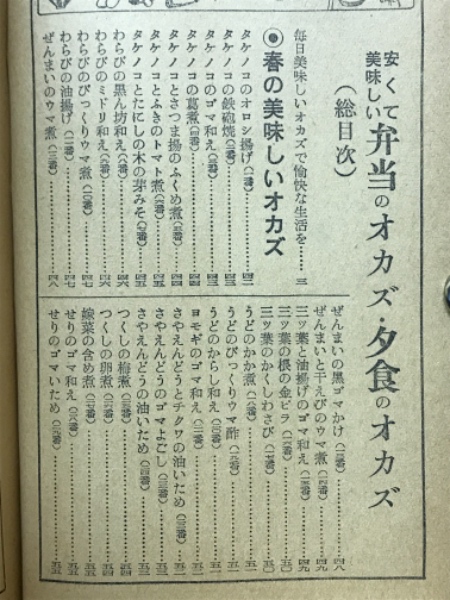 安くて美味しい弁当のオカズ・夕食のオカズ
(総目次)
毎日美味しいオカズで愉快な生活を……三
◉春の美味しいオカズ
タケノコのオロシ揚げ(一番)……四二
タケノコの鉄砲焼(二番)……四三
タケノコのゴマ和え(三番)……四三
タケノコの葛煮(四番)……四三
タケノコとさつま揚のふくめ煮(五番)……四四
タケノコとふきのトマト煮(六番)……四五
タケノコとたにしの木の芽みそ(七番)……四五
わらびの黒ん坊和え(八番)……四六
わらびのミドリ和え(九番)……四六
わらびのびっくりウマ煮(一〇番)……四七
わらびの油揚げ(一一番)……四七
ぜんまいのウマ煮(一二番)……四八
ぜんまいの黒ゴマかけ(一三番)……四八
ぜんまいと干えびのウマ煮(一四番)……四九
三ッ葉と油揚げのゴマ和え(一五番)……四九
三ッ葉の根の金ピラ(一六番)……五〇
三ッ葉のかくしわさび(一七番)……五〇
うどのかか煮(一八番)……五一
うどのびっくりウマ酢(一九番)……五一
うどのからし和え(二〇番)……五一
ヨモギのゴマ和え(二一番)……五二
さやえんどうとチクワの油いため(二二番)……五二
さやえんどうのゴマよごし(二三番)……五三
さやえんどうの油いため(二四番)……五三
つくしの梅煮(二五番)……五三
つくしの卵煮(二六番)……五四
嫁菜の含め煮(二七番)……五四
せりのゴマ和え(二八番)……五五
せりのゴマいため(二九番)……五五